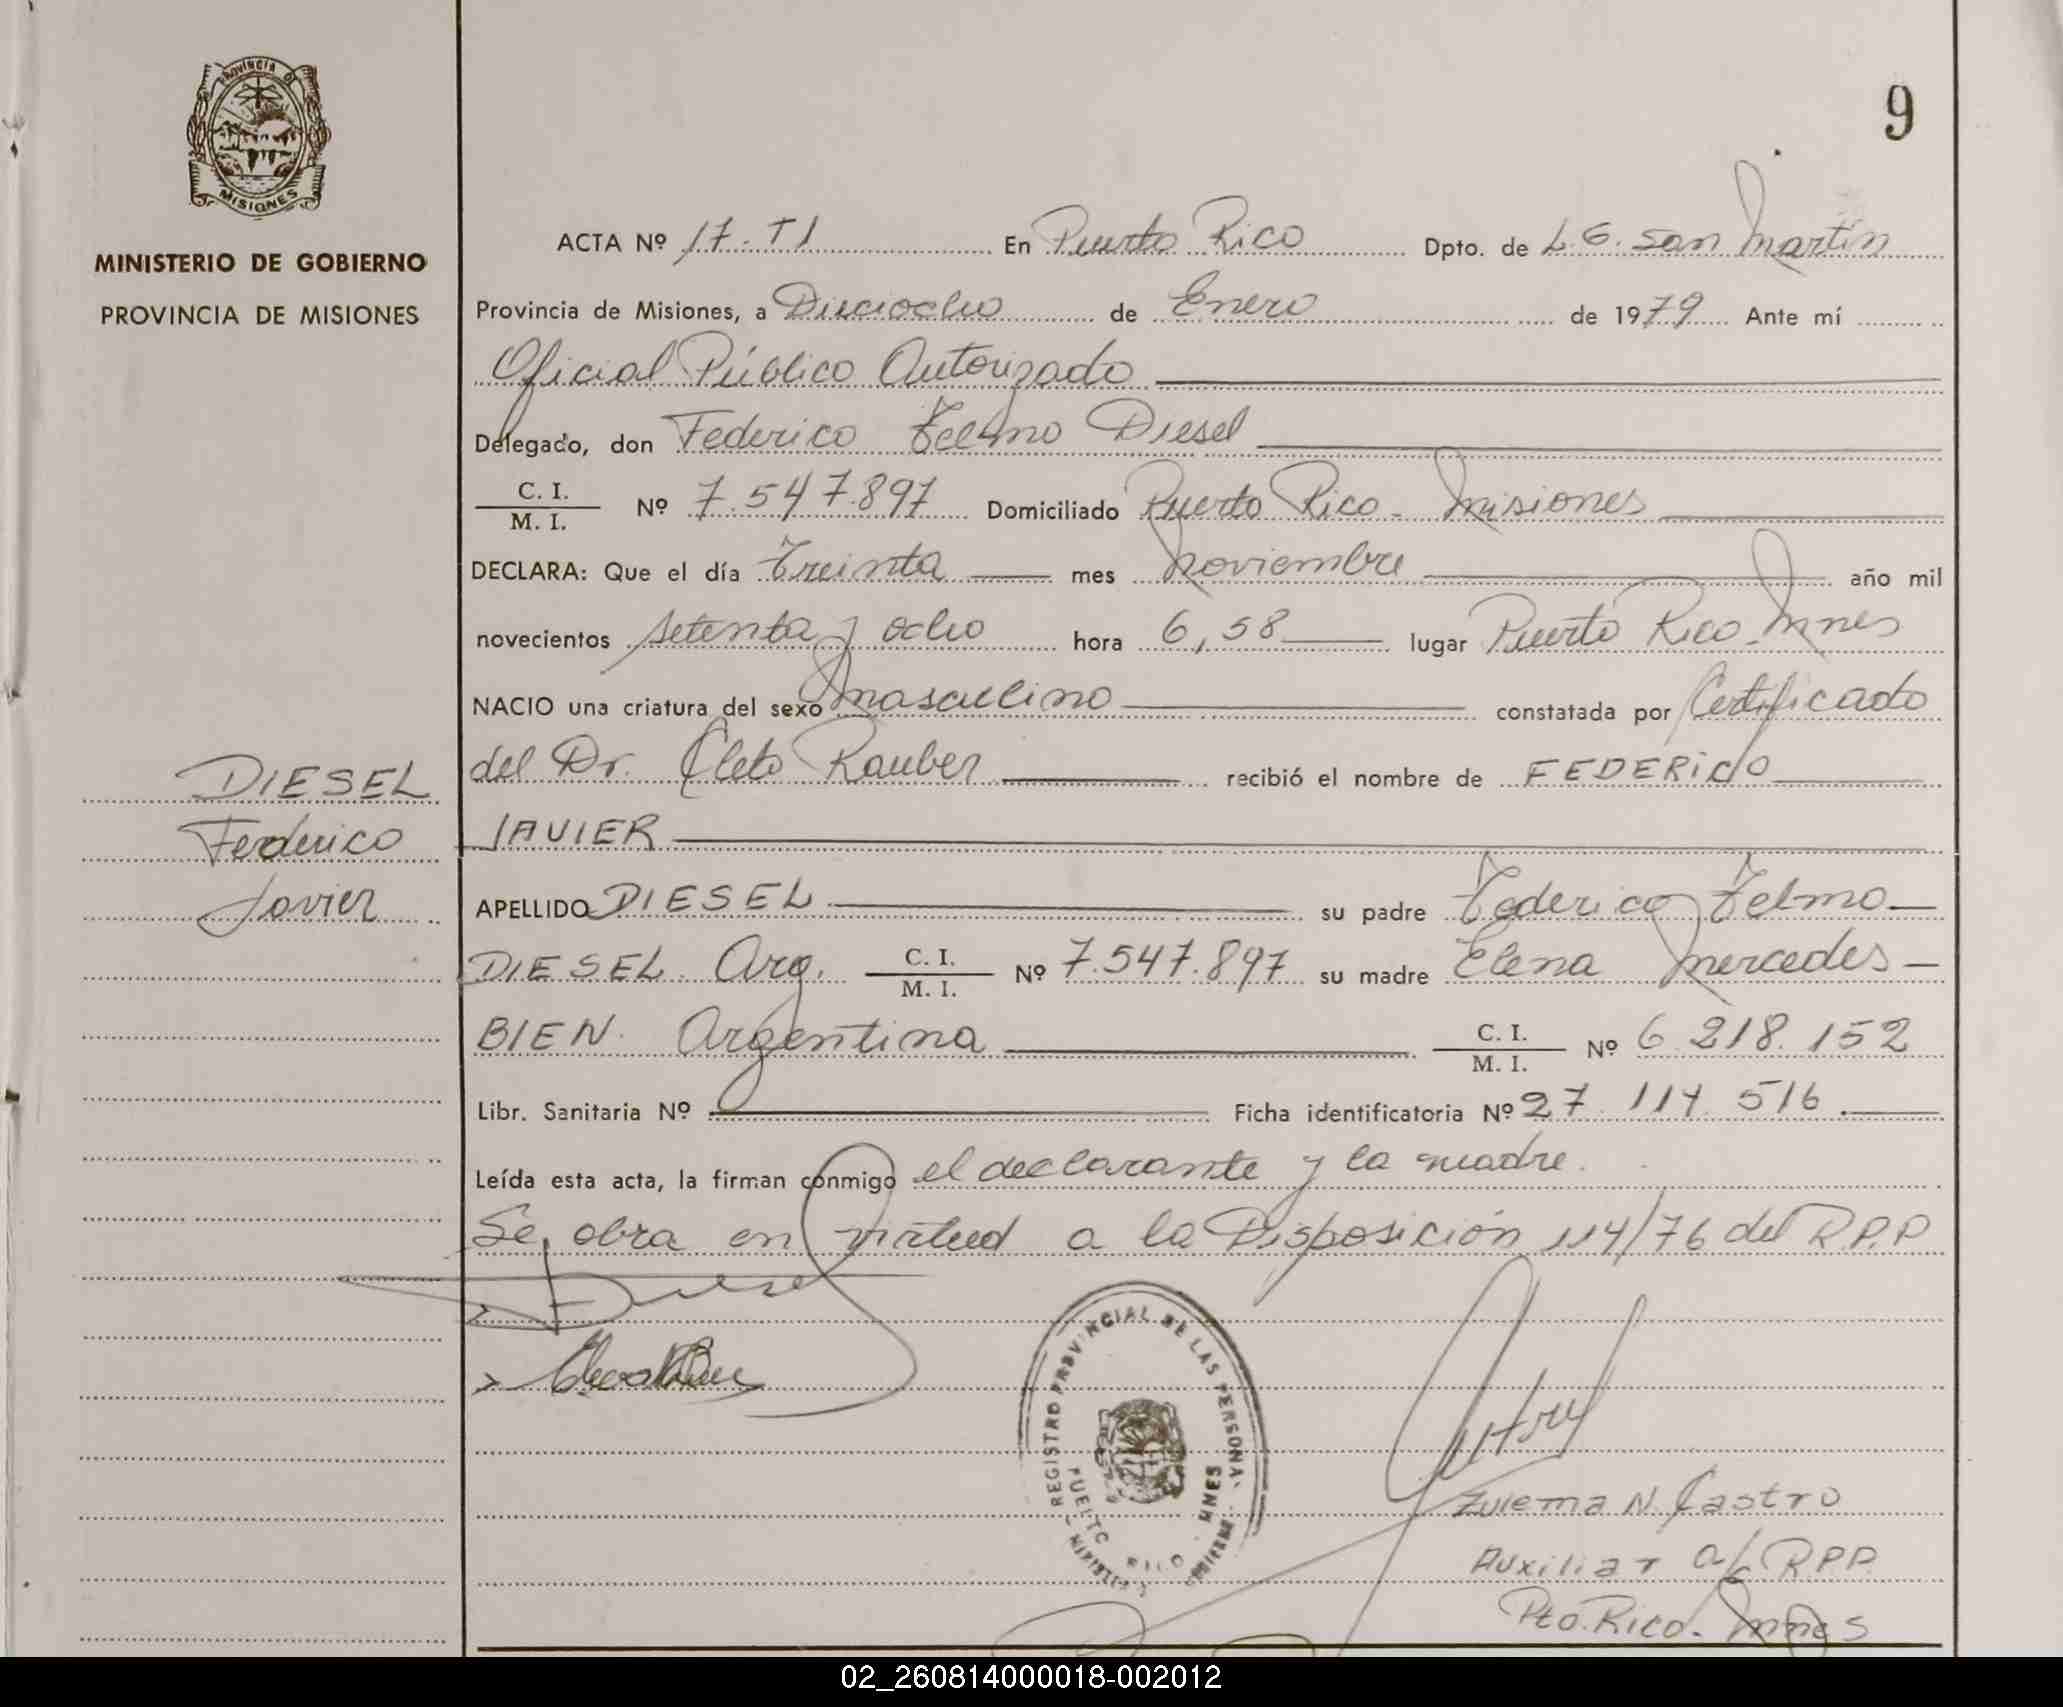 PROVINCIA DE
MISIONES
MINISTERIO DE GOBIERNO
PROVINCIA DE MISIONES
9
ACTA Nº 17-T1 En Puerto Rico Dpto. de L.G. San Martín
Provincia de Misiones, a Dieciocho de Enero de 1979 Ante mí
Oficial Público Autorizado
Delegado, don Federico Telmo Diesel
C. I. / M. I. Nº 7.547.897 Domiciliado Puerto Rico - Misiones
DECLARA: Que el día Treinta mes Noviembre año mil
novecientos setenta y ocho hora 6,58 lugar Puerto Rico Mnes
NACIO una criatura del sexo Masculino constatada por Certificado
del Dr. Cleto Rauber recibió el nombre de FEDERICO
JAVIER
DIESEL
Federico
Javier
APELLIDO DIESEL su padre Federico Telmo
DIESEL Arg. C. I. / M. I. Nº 7.547.897 su madre Elena Mercedes
BIEN. Argentina C. I. / M. I. Nº 6.218.152
Libr. Sanitaria Nº Ficha identificatoria Nº 27.114.516
Leída esta acta, la firman conmigo el declarante y la madre.
Se obra en virtud a la Disposición 114/76 del R.P.P
Diesel
REGISTRO PROVINCIAL DE LAS PERSONAS
PUERTO RICO MNES
Zulema N. Castro
Auxiliar a/c R.P.P.
Pto. Rico. Mnes
02_260814000018-002012